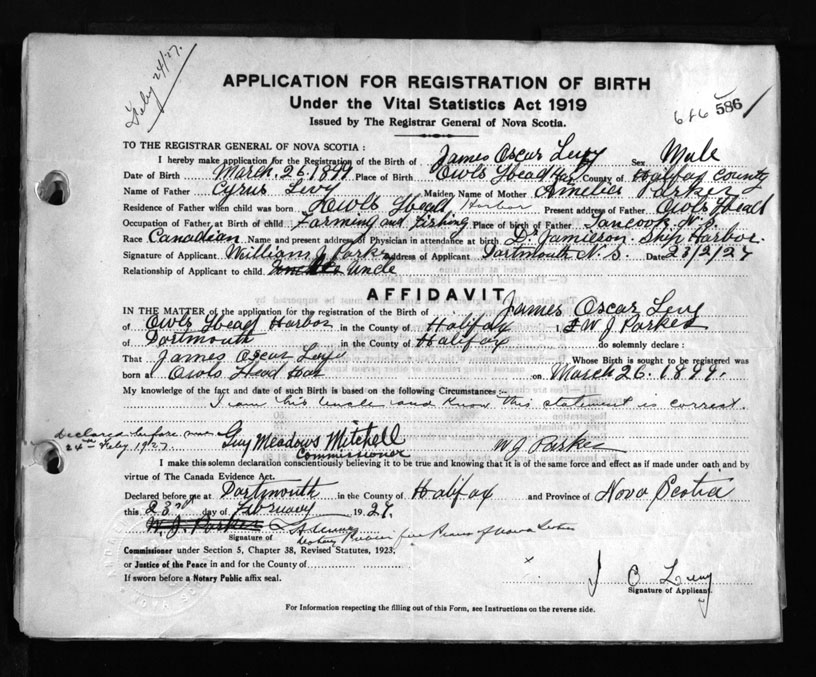 Feby 24/27.
APPLICATION FOR REGISTRATION OF BIRTH
Under the Vital Statistics Act 1919
Issued by The Registrar General of Nova Scotia.
586
TO THE REGISTRAR GENERAL OF NOVA SCOTIA :
I hereby make application for the Registration of the Birth of James Oscar Levy Sex Male
Date of Birth March. 26. 1899 Place of Birth Owls Head Har County of Halifax County
Name of Father Cyrus Levy Maiden Name of Mother Amelia Parker
Residence of Father when child was born Owls Head Harbor Present address of Father Owls Head
Occupation of Father at Birth of child Farming and Fishing Place of birth of Father Tancook N.S.
Race Canadian Name and present address of Physician in attendance at birth Dr Jamieson. Ship Harbor.
Signature of Applicant William J Parker Address of Applicant Dartmouth N. S. Date 23/2/27
Relationship of Applicant to child Uncle
AFFIDAVIT
IN THE MATTER of the application for the registration of the Birth of James Oscar Levy
of Owls Head Harbor in the County of Halifax I, W J Parker
of Dartmouth in the County of Halifax do solemnly declare :
That James Oscar Levy Whose Birth is sought to be registered was
born at Owls Head Har on March 26. 1899.
My knowledge of the fact and date of such Birth is based on the following Circumstances :-
I am his uncle and know this statement is correct.
declared before me
24th Feby 1927. Guy Meadows Mitchell W J Parker
Commissioner
I make this solemn declaration conscientiously believing it to be true and knowing that it is of the same force and effect as if made under oath and by
virtue of The Canada Evidence Act.
Declared before me at Dartmouth in the County of Halifax and Province of Nova Scotia
this 23rd day of February 1927.
W. J. Parker
Signature of Notary Public
Commissioner under Section 5, Chapter 38, Revised Statutes, 1923,
or Justice of the Peace in and for the County of
If sworn before a Notary Public affix seal.
x J O Levy
Signature of Applicant
For Information respecting the filling out of this Form, see Instructions on the reverse side.